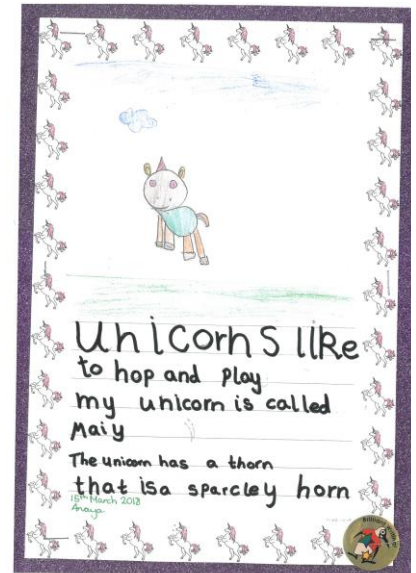 Unicorns like
to hop and play
my unicorn is called
Maiy
The unicorn has a thorn
that isa sparcley horn
15th March 2018
Anaya